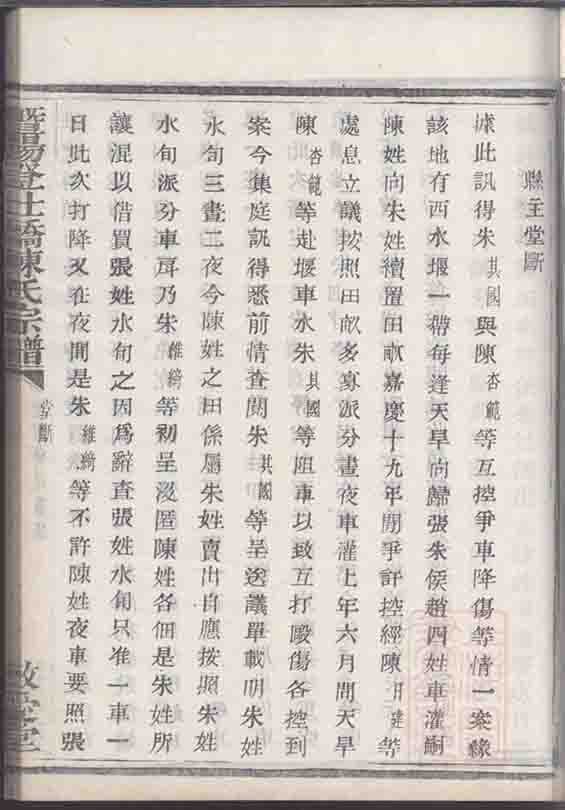 縣主堂斷
據此訊得朱其國與陳杏範等互控爭車降傷等情一案緣
該地有西水堰一帶每逢天旱向歸張朱侯趙四姓車灌嗣
陳姓向朱姓續置田畝嘉慶十九年間爭訐控經陳月建等
處息立議按照田畝多寡派分晝夜車灌上年六月間天旱
陳杏範等赴堰車水朱其國等阻車以致互打毆傷各控到
案今集庭訊得悉前情查閱朱其國等呈送議單載明朱姓
水旬三晝二夜今陳姓之田係屬朱姓賣出自應按照朱姓
水旬派分車戽乃朱維綺等初呈沒匿陳姓各佃是朱姓所
讓混以借買張姓水旬之因爲辭查張姓水旬只准一車一
日此次打降又在夜間是朱維綺等不許陳姓夜車要照張
暨陽登仕橋陳氏宗譜
堂斷
敬愛堂